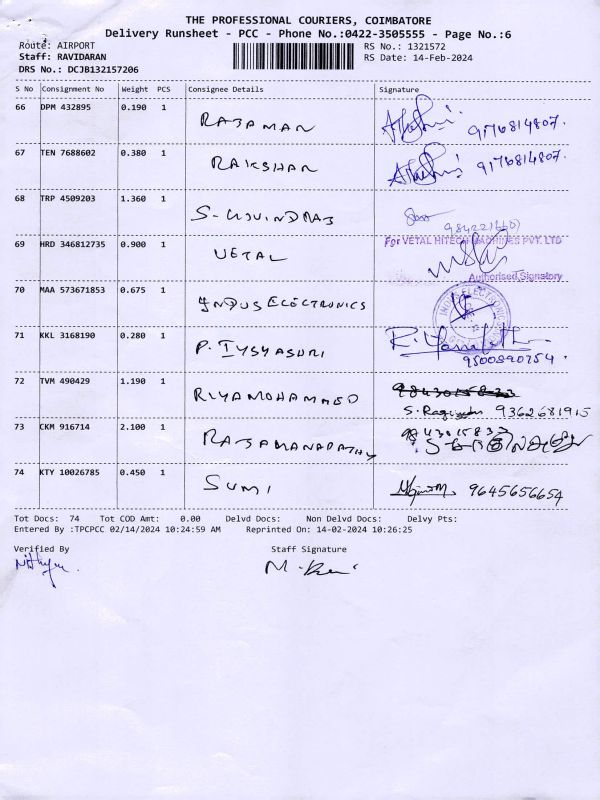 THE PROFESSIONAL COURIERS, COIMBATORE
Delivery Runsheet - PCC - Phone No.:0422-3505555 - Page No.:6
Route: AIRPORT RS No.: 1321572
Staff: RAVIDARAN RS Date: 14-Feb-2024
DRS No.: DCJB132157206
S No Consignment No Weight PCS Consignee Details Signature
66 DPM 432895 0.190 1 RAJAMAN 9176814807.
67 TEN 7688602 0.380 1 RAKSHAN 9176814807.
68 TRP 4509203 1.360 1 S-GOVINDRAJ
69 HRD 346812735 0.900 1 VETAL For VETAL HITECH MACHINES PVT. LTD
Authorised Signatory
70 MAA 573671853 0.675 1 INDUS ELECTRONICS
71 KKL 3168190 0.280 1 P. 9500890754.
72 TVM 490429 1.190 1 RIYAMOHAMMED 9843015833
S. 9362681915
73 CKM 916714 2.100 1 RAJAMANAPATHY 9843015833
74 KTY 10026785 0.450 1 SUMI 9645656654
Tot Docs: 74 Tot COD Amt: 0.00 Delvd Docs: Non Delvd Docs: Delvy Pts:
Entered By :TPCPCC 02/14/2024 10:24:59 AM Reprinted On: 14-02-2024 10:26:25
Verified By Staff Signature